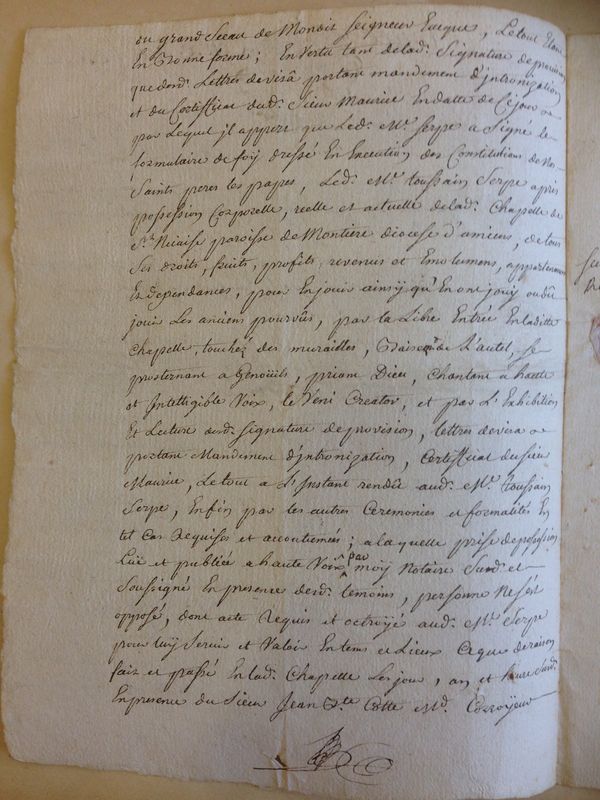 du grand Sceau de Mondit Seigneur Eveque, Le tout Etant
En Bonne forme; En Vertu tant de lad. Signature de provision
que desd. Lettres de visa portant mandement d'intronization
et du Certifficat dud. Sieur Maurice En datte de Ce jour
par Lequel il appert que Led. Mr. Serpe a Signé le
formulaire de foy dressé En Execution des Constitutions de Nos
Saints peres les papes, Led. Mr. toussain Serpe a pris
possession Corporelle, reelle et actuelle de lad. Chapelle de
St. Nicaise paroisse de Montiere diocese d'amiens, de tous
Ses droits, fruits, profits, revenus et Emolumens, appartenances
Et dependances, pour En jouir ainsy qu'En ont jouy ou dû
jouir Les anciens pourvûs, par la Libre Entrée En laditte
Chapelle, touché des murailles, Baisemt. de L'autel, Se
prosternant a Genoüils, priant Dieu, Chantant a haute
et Intelligible Voix, le Veni Creator, et par L'Exhibition
Et Lecture desd. Signature de provision, lettres de visa
portant Mandement d'intronization, Certifficat du Sieur
Maurice, Le tout a L'Instant rendû aud. Mr. toussain
Serpe, Enfin par les autres Ceremonies et formalités En
tel Cas Requises et accoutumées; a la quelle prise de possession
Lüe et publiée a haute Voix par moy Notaire Susd. et
Soussigné En presence desd. temoins, personne Ne s'est
opposé, dont acte Requis et octroyé aud. Mr. Serpe
pour luy Servir et Valoir En tems et Lieux Ce que de raison
fait et passé En lad. Chapelle Les jour, an et heure Susd.
En presence du Sieur Jean Bte. Cotte Md. Corroyeur